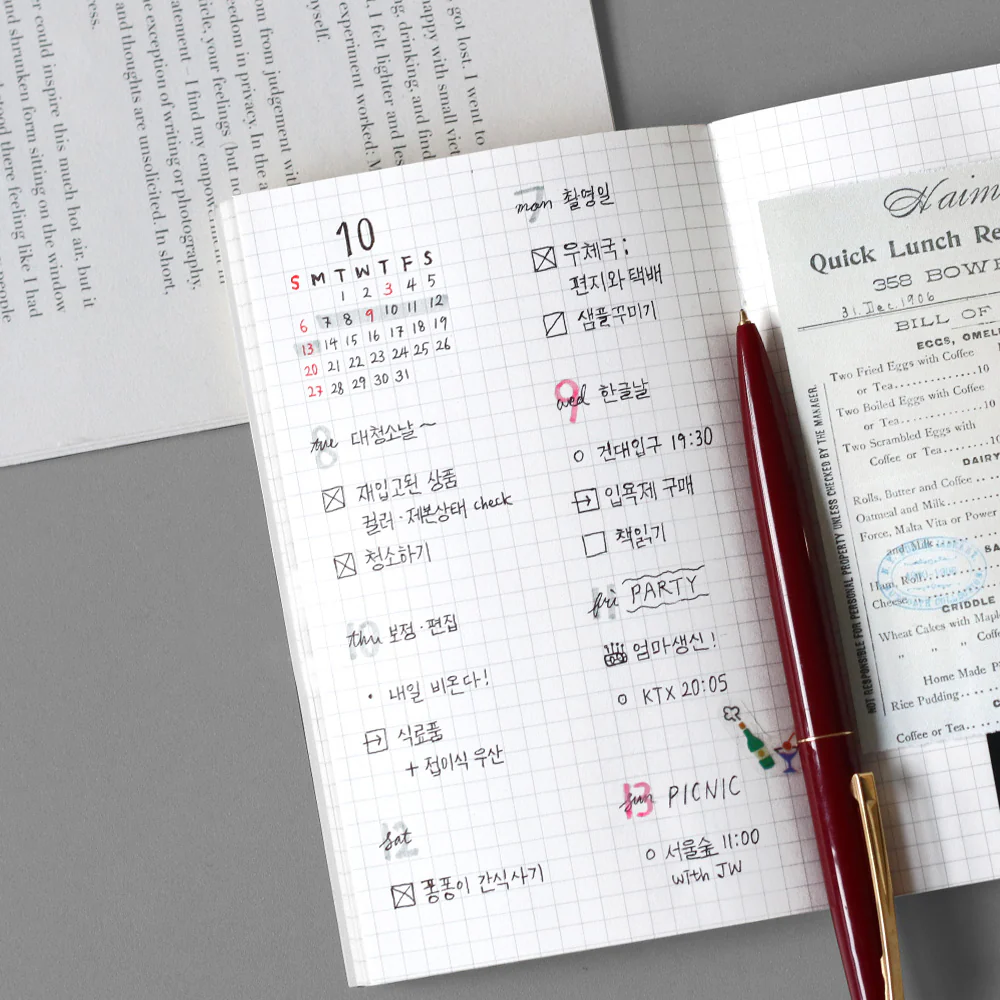 got lost. I went to
happy with small vict
ng, drinking, and find
d. I felt lighter and les
experiment worked: M
myself.
om from judgement wit
eedom in privacy. In the a
icle, your feelings (but no
atement – I find my empow
e exception of writing or photography,
and thoughts are unsolicited. In short,
ress.
er could inspire this much hot air, but it
and shrunken form sitting on the window
stood there feeling like I had
people
10
S M T W T F S
1 2 3 4 5
6 7 8 9 10 11 12
13 14 15 16 17 18 19
20 21 22 23 24 25 26
27 28 29 30 31
7 mon 촬영일
우체국;
편지와 택배
샘플꾸미기
8 tue 대청소날~
재입고된 상품
컬러·제본상태 check
청소하기
9 wed 한글날
건대입구 19:30
입욕제 구매
책읽기
10 thu 보정·편집
· 내일 비온다!
식료품
+ 접이식 우산
11 fri PARTY
엄마생신!
KTX 20:05
12 sat
퐁퐁이 간식사기
13 sun PICNIC
서울숲 11:00
with JW
Haim
Quick Lunch Re
358 BOWE
31. Dec. 1906
BILL OF
EGGS, OMEL
Two Fried Eggs with Coffee
or Tea..............10
Two Boiled Eggs with Coffee
or Tea..............10
Two Scrambled Eggs with
Coffee or Tea..........10
DAIRY
Rolls, Butter and Coffee
Oatmeal and Milk
Force, Malta Vita or Power
and Milk
SA
Ham, Roll
Cheese
GRIDDLE
Wheat Cakes with Maple
" " Coffe
Home Made P
Rice Pudding
Coffee or Tea
NOT RESPONSIBLE FOR PERSONAL PROPERTY UNLESS CHECKED BY THE MANAGER.